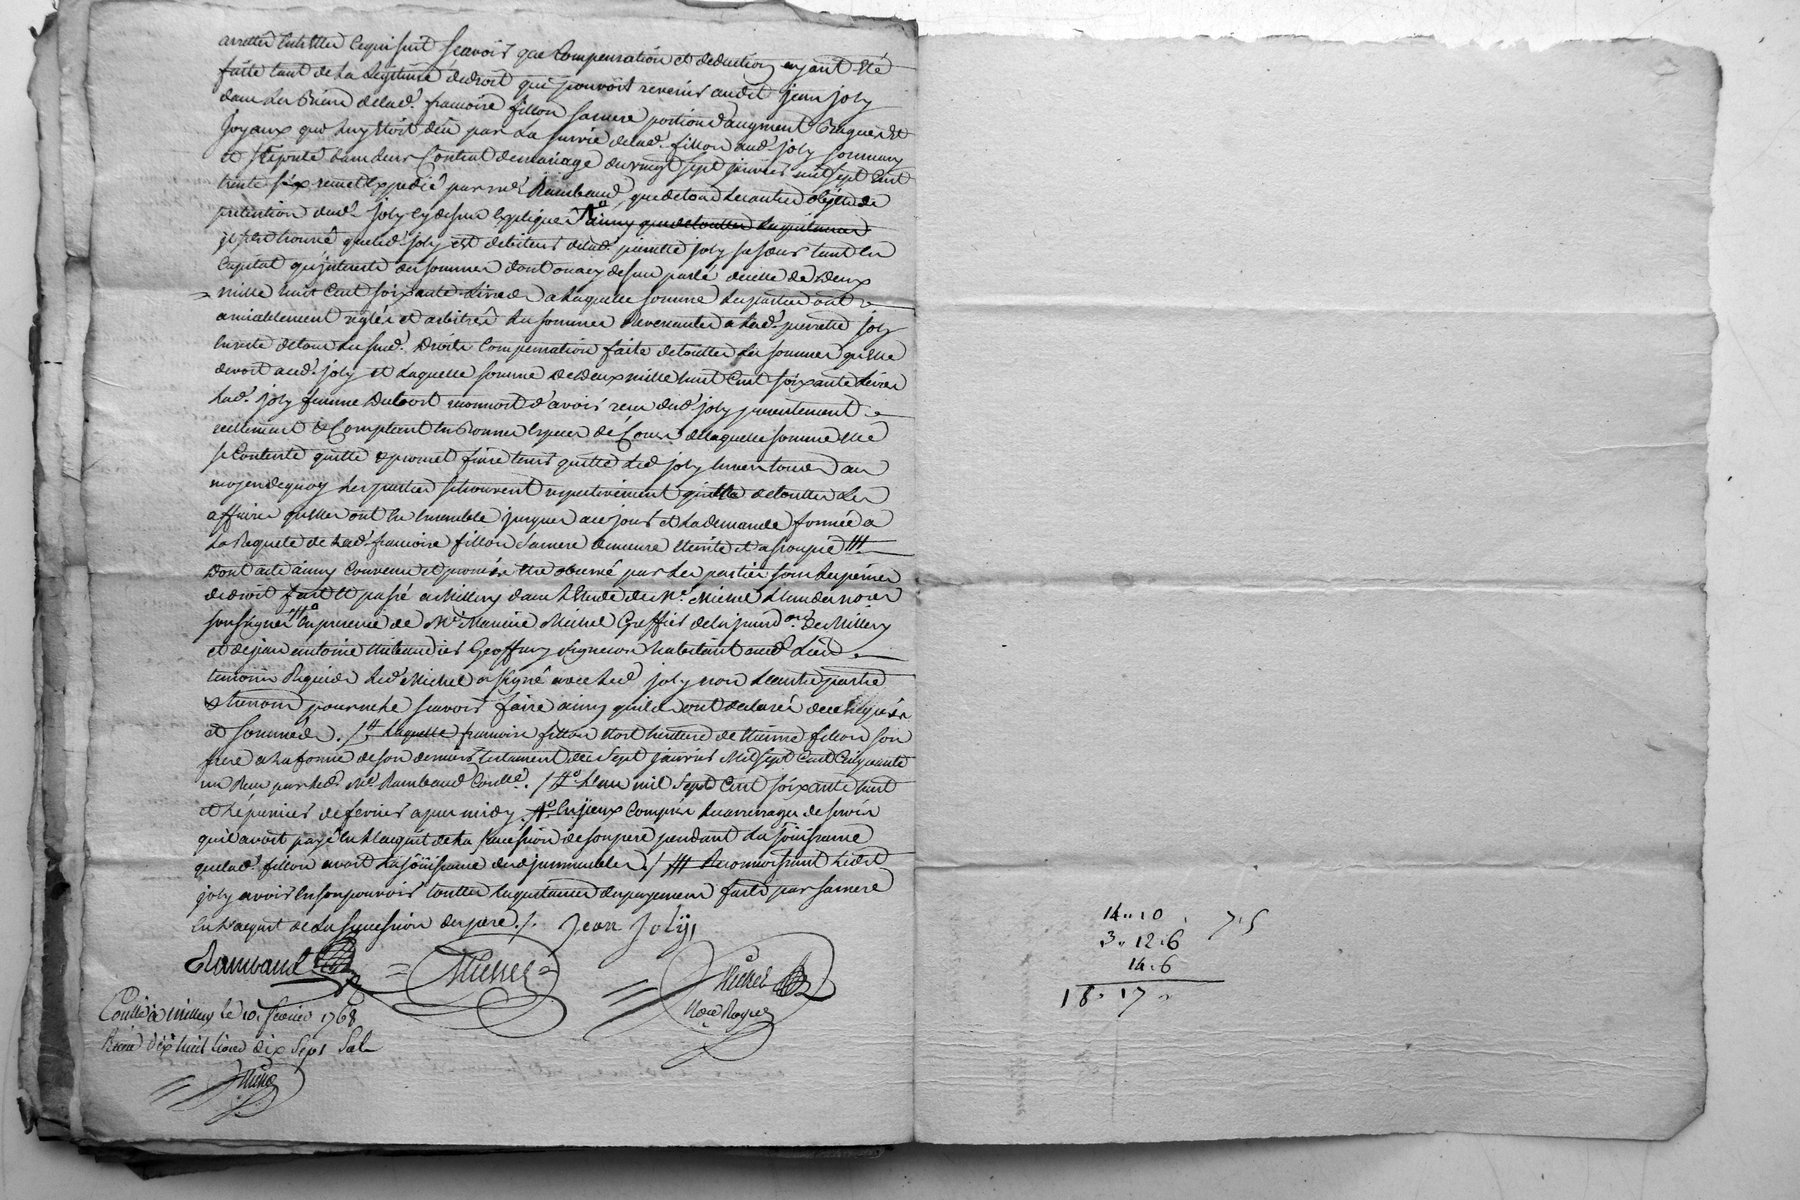 arretté entr'elles ce qui suit scavoir que compensation et deduction ayant eté
faite tant de la legitime de droit qui pouvoit revenir audit jean joly
dans les biens de lad.e francoise fillon sa mere portion d'augment bagues et
joyaux que luy etoit deü par la survie de lad.e fillon aud.t joly
et stipulé dans leur contrat de mariage du vingt sept janvier mil sept cent
trente six receu et expedié par me Rambaud, que de tous les autres objets de
pretention dud.t joly cy dessus expliqués ainsy que de touttes les quittances
il s'est trouvé que led.t joly est debiteur de lad.e pierrette joly sa soeur tant en
capital qu'interets des sommes dont on a cy dessus parlé de celle de deux
mille huit cent soixante livres a laquelle somme les parties ont
amiablement reglés et arbitrés les sommes revenantes a lad.e pierrette joly
ensuite de tous les sud.t droits compensation faite de touttes les sommes qu'elle
devoit aud.t joly et laquelle somme de deux mille huit cent soixante livres
lad.e joly femme Dutour reconnoit d'avoir receu dud.t joly presentement
reellement et comptant en bonnes especes de cours de laquelle somme elle
se contente quitte et promet faire tenir quitte led.t joly envers tous au
moyen de quoy les parties se trouvent respectivement quittes de touttes les
affaires qu'elles ont eu ensemble jusques a ce jour et la demande formée a
la requete de lad.e francoise fillon sa mere demeure eteinte et assoupie ///
Dont acte ainsy convenu et promis etre observé par les parties sous les peines
de droit fait et passé a Millery dans l'etude de Me Michel l'un des no.res
soussignés en presence de Me Michel Greffier de la jurid.on de Millery
et de jean antoine Geoffray vigneron habitant aud.t lieu
temoins requis led.t Michel a signé avec led.t joly non les autres parties
et temoin pour ne le scavoir faire ainsy qu'ils ont declarés de ce enquis
et sommés. /# laquelle francoise fillon etoit heritiere de fillon son
frere a la forme de son dernier testament du sept janvier Mil sept cent cinquante
un receu par led.t Me Rambaud /# L'an mil sept cent soixante huit
et le premier de fevrier apres midy. en jceux compris les arrerages de servis
qu'il avoit payé en l'acquit de la succession de son pere pendant la joüissance
que lad.e fillon avoit la joüissance desd. jmmeubles. / /// reconnoissant ledit
joly avoir en son pouvoir touttes les quittances de payemens faits par sa mere
en l'acquit de la succession du pere. /. Jean Joly
Rambaud Michel Michel
No.re Royal
Con.llé a Millery le 10. fevrier 1768
Receu dix huit livres dix sept sols
Michel
14.. 10 . 7. 5
3.. 12. 6
14. 6
18. 17 ..